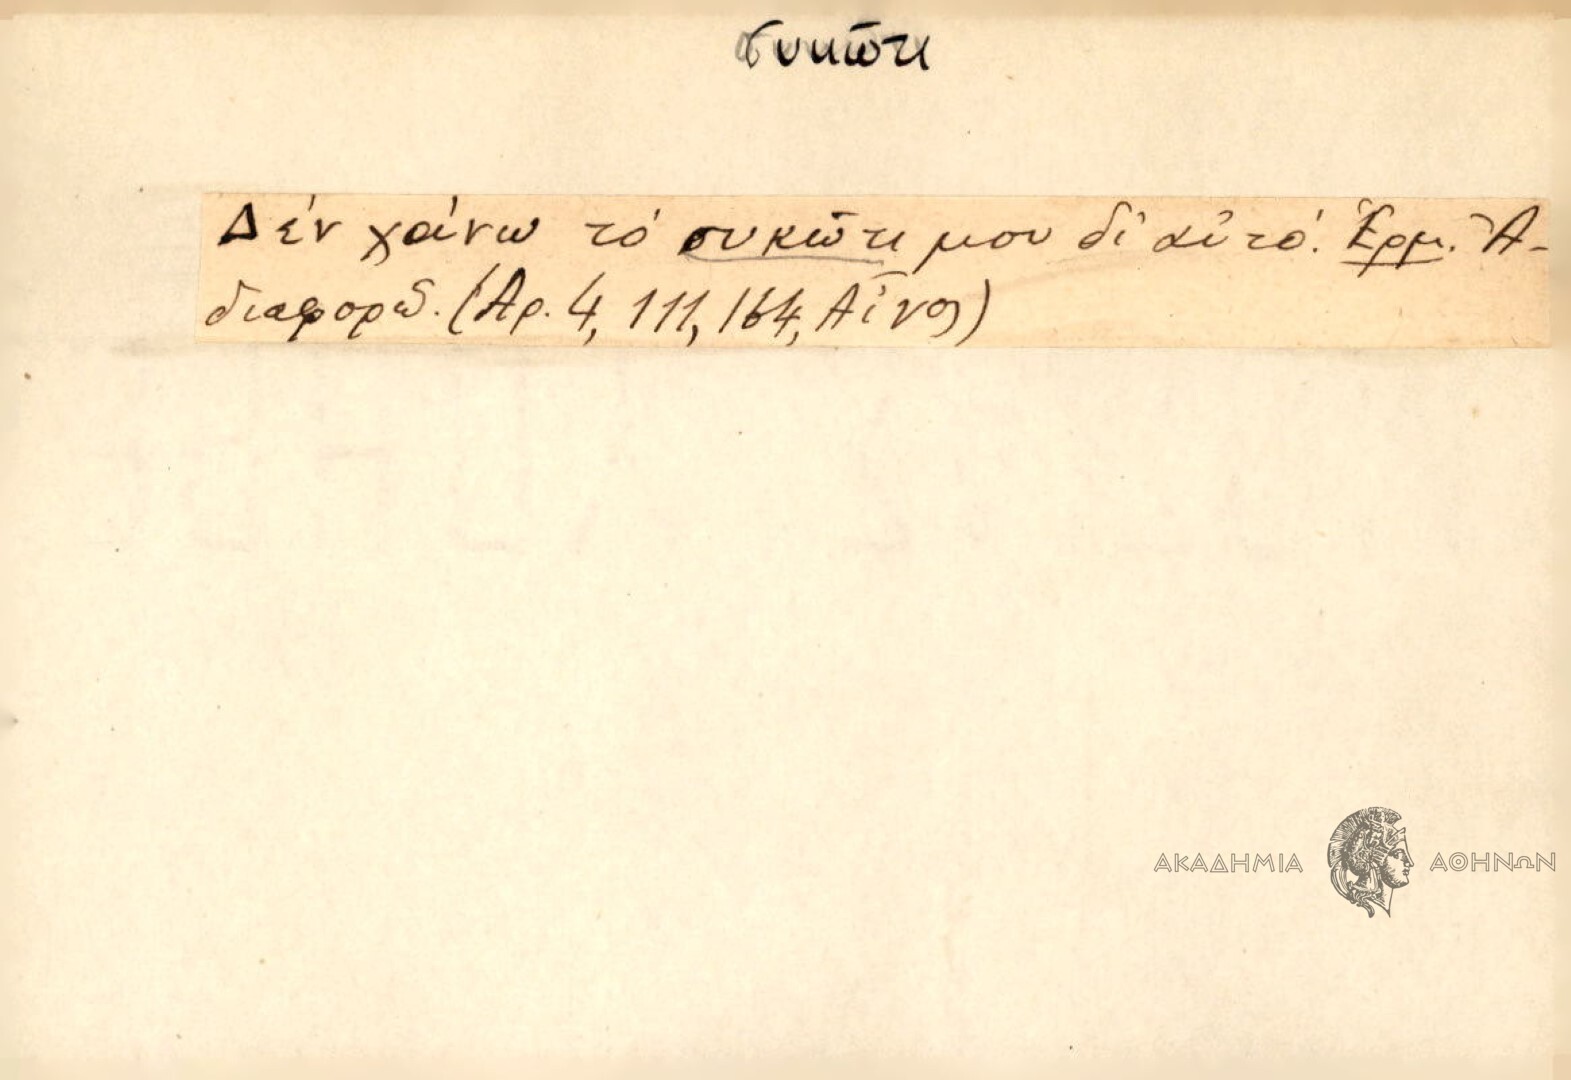 συκῶτι
Δέν χάνω τό συκῶτι μου δι' αὐτό. Ἑρμ. Ἀ-
διαφορῶ. (Αρ. 4, 111, 164, Αἶνος)
ΑΚΑΔΗΜΙΑ ΑΘΗΝΩΝ